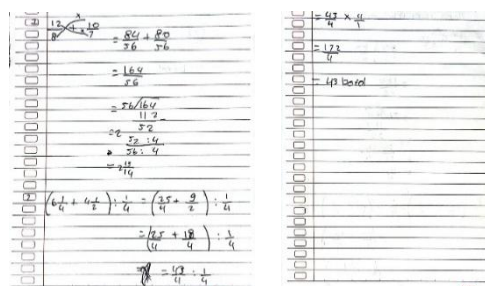 1) 12/8 + 10/7
= 84/56 + 80/56
= 164/56
= 56/164
112
52
= 2
52 : 4
56 : 4
= 2 13/14
2 (6 1/4 + 4 1/2) : 1/4 = (25/4 + 9/2) : 1/4
= (25/4 + 18/4) : 1/4
= 43/4 : 1/4
= 43/4 x 4/1
= 172/4
= 43 botol